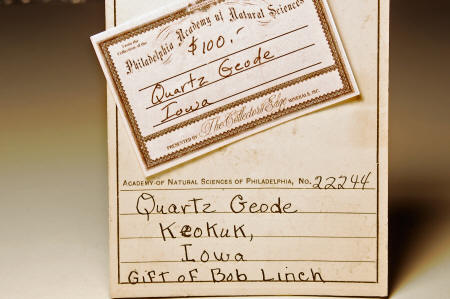 From the
Collection of the
Philadelphia Academy of Natural Sciences
$100.-
Quartz Geode
Iowa
PRESENTED BY The Collector's Edge MINERALS, INC.
ACADEMY OF NATURAL SCIENCES OF PHILADELPHIA, NO. 22244
Quartz Geode
Keokuk,
Iowa
GIFT OF Bob Linch